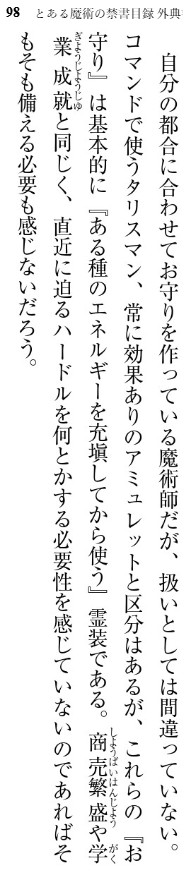 98 とある魔術の禁書目録 外典
自分の都合に合わせてお守りを作っている魔術師だが、扱いとしては間違っていない。
コマンドで使うタリスマン、常に効果ありのアミュレットと区分はあるが、これらの『お
守り』は基本的に『ある種のエネルギーを充填してから使う』霊装である。商売繁盛や学
業成就と同じく、直近に迫るハードルを何とかする必要性を感じていないのであればそ
もそも備える必要も感じないだろう。